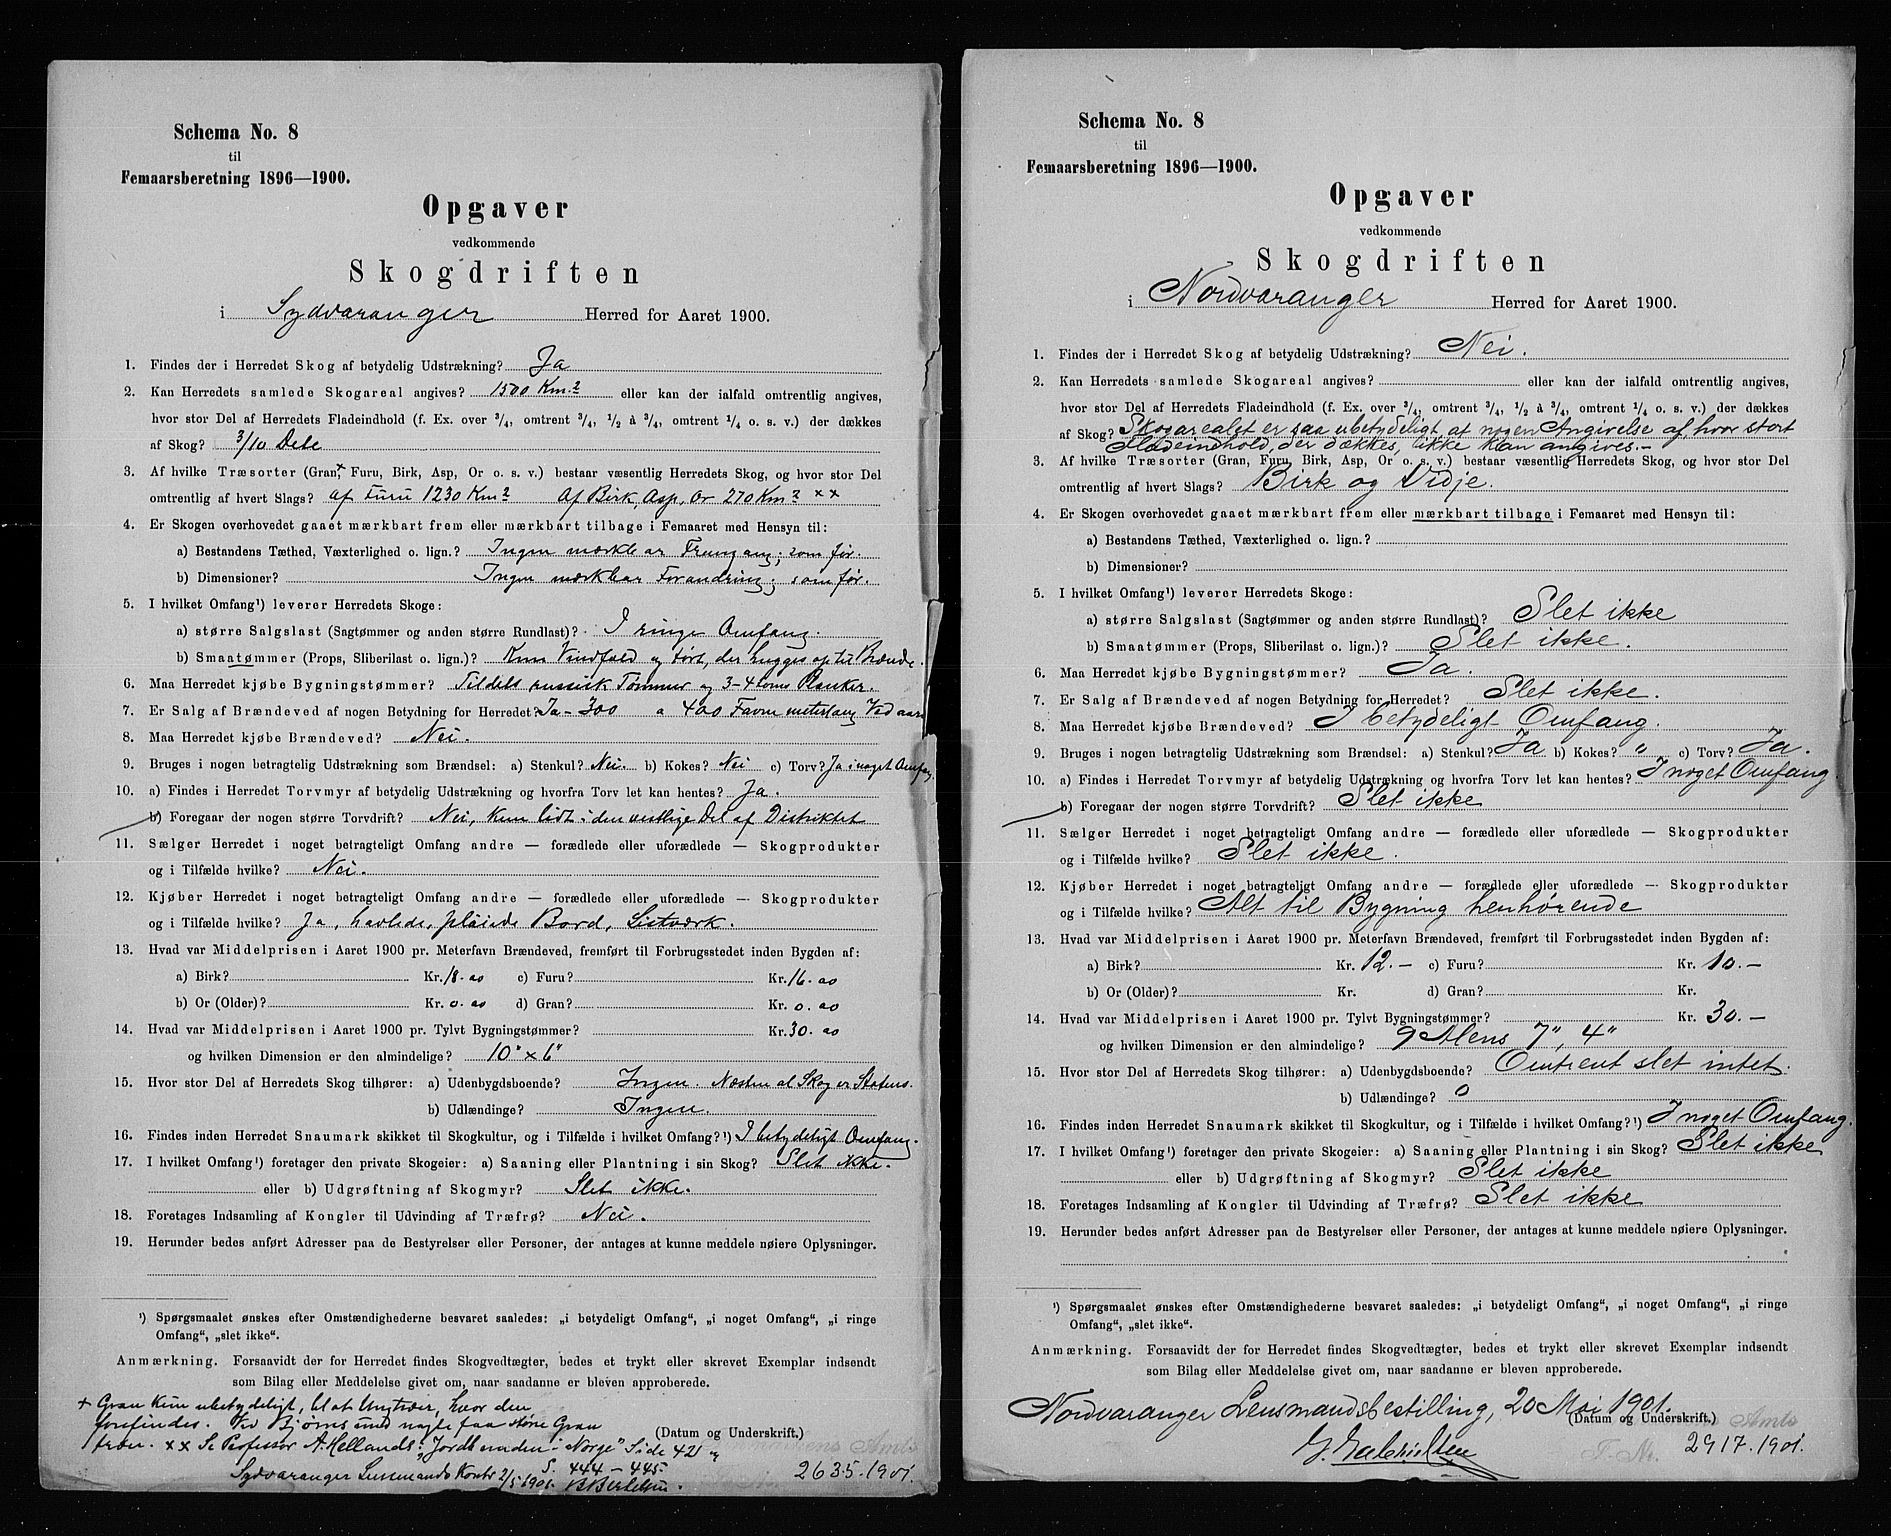 Schema No. 8
til
Femaarsberetning 1896—1900.
Opgaver
vedkommende
Skogdriften
i Sydvaranger Herred for Aaret 1900.
1. Findes der i Herredet Skog af betydelig Udstrækning? Ja
2. Kan Herredets samlede Skogareal angives? 1500 Km.² eller kan der ialfald omtrentlig angives,
hvor stor Del af Herredets Fladeindhold (f. Ex. over 3/4, omtrent 3/4, 1/2 à 3/4, omtrent 1/4 o. s. v.) der dækkes
af Skog? 3/10 Dele
3. Af hvilke Træsorter (Gran,+ Furu, Birk, Asp, Or o. s. v.) bestaar væsentlig Herredets Skog, og hvor stor Del
omtrentlig af hvert Slags? af Furu 1230 Km² Af Birk, Asp, Or 270 Km² ××
4. Er Skogen overhovedet gaaet mærkbart frem eller mærkbart tilbage i Femaaret med Hensyn til:
a) Bestandens Tæthed, Væxterlighed o. lign.? Ingen mærkbar Fremgang; som før.
b) Dimensioner? Ingen mærkbar Forandring; som før.
5. I hvilket Omfang¹) leverer Herredets Skoge:
a) større Salgslast (Sagtømmer og anden større Rundlast)? I ringe Omfang.
b) Smaatømmer (Props, Sliberilast o. lign.)? Kun Vindfald og tørt, der hugges op til Brænde.
6. Maa Herredet kjøbe Bygningstømmer? Tildels russisk Tømmer og 3-4 toms Planker.
7. Er Salg af Brændeved af nogen Betydning for Herredet? Ja - 300 a 400 Favne meterlang Ved aarl
8. Maa Herredet kjøbe Brændeved? Nei.
9. Bruges i nogen betragtelig Udstrækning som Brændsel: a) Stenkul? Nei. b) Kokes? Nei c) Torv? Ja i noget Omfang
10. a) Findes i Herredet Torvmyr af betydelig Udstrækning og hvorfra Torv let kan hentes? Ja.
b) Foregaar der nogen større Torvdrift? Nei, kun lidt i den vestlige Del af Distriktet
11. Sælger Herredet i noget betragteligt Omfang andre — forædlede eller uforædlede — Skogprodukter
og i Tilfælde hvilke? Nei.
12. Kjøber Herredet i noget betragteligt Omfang andre — forædlede eller uforædlede — Skogprodukter
og i Tilfælde hvilke? Ja, høvlede, pløiede Bord, Listværk.
13. Hvad var Middelprisen i Aaret 1900 pr. Meterfavn Brændeved, fremført til Forbrugsstedet inden Bygden af:
a) Birk? Kr. 18. 00 c) Furu? Kr. 16. 00
b) Or (Older)? Kr. 0. 00 d) Gran? Kr. 0. 00
14. Hvad var Middelprisen i Aaret 1900 pr. Tylvt Bygningstømmer? Kr. 30. 00
og hvilken Dimension er den almindelige? 10" × 6"
15. Hvor stor Del af Herredets Skog tilhører: a) Udenbygdsboende? Ingen. Næsten al Skog er Statens.
b) Udlændinge? Ingen.
16. Findes inden Herredet Snaumark skikket til Skogkultur, og i Tilfælde i hvilket Omfang?¹) I betydeligt Omfang.
17. I hvilket Omfang¹) foretager den private Skogeier: a) Saaning eller Plantning i sin Skog? Slet ikke.
eller b) Udgrøftning af Skogmyr? Slet ikke.
18. Foretages Indsamling af Kongler til Udvinding af Træfrø? Nei.
19. Herunder bedes anført Adresser paa de Bestyrelser eller Personer, der antages at kunne meddele nøiere Oplysninger.
¹) Spørgsmaalet ønskes efter Omstændighederne besvaret saaledes: „i betydeligt Omfang“, „i noget Omfang“, „i ringe
Omfang“, „slet ikke“.
Anmærkning. Forsaavidt der for Herredet findes Skogvedtægter, bedes et trykt eller skrevet Exemplar indsendt
som Bilag eller Meddelelse givet om, naar saadanne er bleven approberede.
+ Gran kun ubetydeligt, blot Ungtrær, hvor den
forefindes. Ved Bjørnsund nogle faa store Gran
trær. ×× Se Professor A. Hellands: „Jordbunden i Norge" Side 421 og
(Datum og Underskrift.)
S. 444 - 445.
Sydvaranger Lensmands Kontor 2/5 1901. B Bertelsen.
Amts
2635-1901.
Schema No. 8
til
Femaarsberetning 1896—1900.
Opgaver
vedkommende
Skogdriften
i Nordvaranger Herred for Aaret 1900.
1. Findes der i Herredet Skog af betydelig Udstrækning? Nei.
2. Kan Herredets samlede Skogareal angives? eller kan der ialfald omtrentlig angives,
hvor stor Del af Herredets Fladeindhold (f. Ex. over 3/4, omtrent 3/4, 1/2 à 3/4, omtrent 1/4 o. s. v.) der dækkes
af Skog? Skogarealet er saa ubetydeligt at nogen Angivelse af, hvor stort
Fladeindhold, der dækkes, ikke kan angives.-
3. Af hvilke Træsorter (Gran, Furu, Birk, Asp, Or o. s. v.) bestaar væsentlig Herredets Skog, og hvor stor Del
omtrentlig af hvert Slags? Birk og Vidje.
4. Er Skogen overhovedet gaaet mærkbart frem eller mærkbart tilbage i Femaaret med Hensyn til:
a) Bestandens Tæthed, Væxterlighed o. lign.?
b) Dimensioner?
5. I hvilket Omfang¹) leverer Herredets Skoge:
a) større Salgslast (Sagtømmer og anden større Rundlast)? Slet ikke
b) Smaatømmer (Props, Sliberilast o. lign.)? Slet ikke.
6. Maa Herredet kjøbe Bygningstømmer? Ja.
7. Er Salg af Brændeved af nogen Betydning for Herredet? Slet ikke.
8. Maa Herredet kjøbe Brændeved? I betydeligt Omfang.
9. Bruges i nogen betragtelig Udstrækning som Brændsel: a) Stenkul? Ja b) Kokes? „ c) Torv? Ja.
10. a) Findes i Herredet Torvmyr af betydelig Udstrækning og hvorfra Torv let kan hentes? I noget Omfang
b) Foregaar der nogen større Torvdrift? Slet ikke
11. Sælger Herredet i noget betragteligt Omfang andre — forædlede eller uforædlede — Skogprodukter
og i Tilfælde hvilke? Slet ikke.
12. Kjøber Herredet i noget betragteligt Omfang andre — forædlede eller uforædlede — Skogprodukter
og i Tilfælde hvilke? Alt til Bygning henhørende
13. Hvad var Middelprisen i Aaret 1900 pr. Meterfavn Brændeved, fremført til Forbrugsstedet inden Bygden af:
a) Birk? Kr. 12. – c) Furu? Kr. 10. –
b) Or (Older)? Kr. d) Gran? Kr.
14. Hvad var Middelprisen i Aaret 1900 pr. Tylvt Bygningstømmer? Kr. 30. –
og hvilken Dimension er den almindelige? 9 Alens 7", 4"
15. Hvor stor Del af Herredets Skog tilhører: a) Udenbygdsboende? Omtrent slet intet.
b) Udlændinge? 0
16. Findes inden Herredet Snaumark skikket til Skogkultur, og i Tilfælde i hvilket Omfang?¹) I noget Omfang.
17. I hvilket Omfang¹) foretager den private Skogeier: a) Saaning eller Plantning i sin Skog? Slet ikke
eller b) Udgrøftning af Skogmyr? Slet ikke
18. Foretages Indsamling af Kongler til Udvinding af Træfrø? Slet ikke
19. Herunder bedes anført Adresser paa de Bestyrelser eller Personer, der antages at kunne meddele nøiere Oplysninger.
¹) Spørgsmaalet ønskes efter Omstændighederne besvaret saaledes: „i betydeligt Omfang“, „i noget Omfang“, „i ringe
Omfang“, „slet ikke“.
Anmærkning. Forsaavidt der for Herredet findes Skogvedtægter, bedes et trykt eller skrevet Exemplar indsendt
som Bilag eller Meddelelse givet om, naar saadanne er bleven approberede.
Nordvaranger Lensmandsbestilling, 20 Mai 1901.
(Datum og Underskrift.)
Amts
2917-1901.